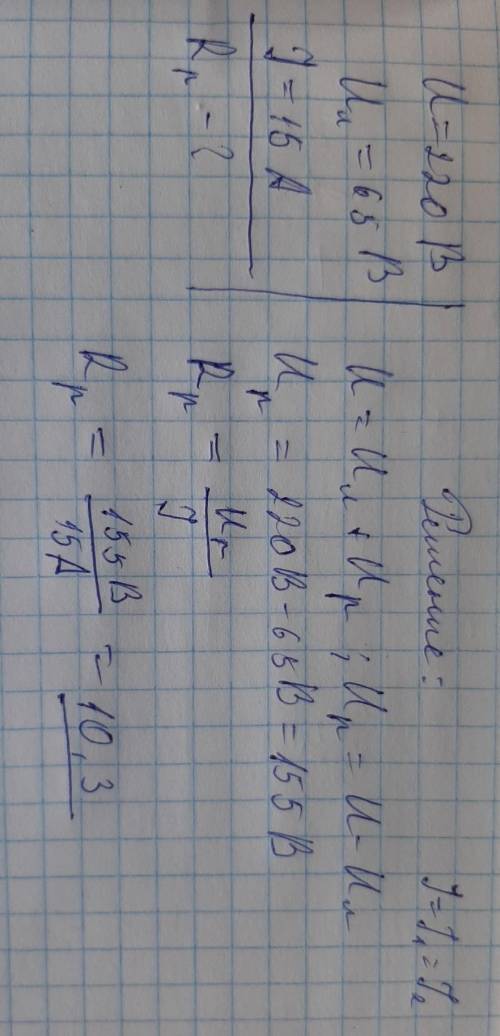 U = 220 В
Uл = 65 В
I = 15 А
Rр - ?
Решение:
I = I₁ = I₂
U = Uл + Uр ; Uр = U - Uл
Uр = 220 В - 65 В = 155 В
Rр = Uр / I
Rр = 155 В / 15 А = 10,3